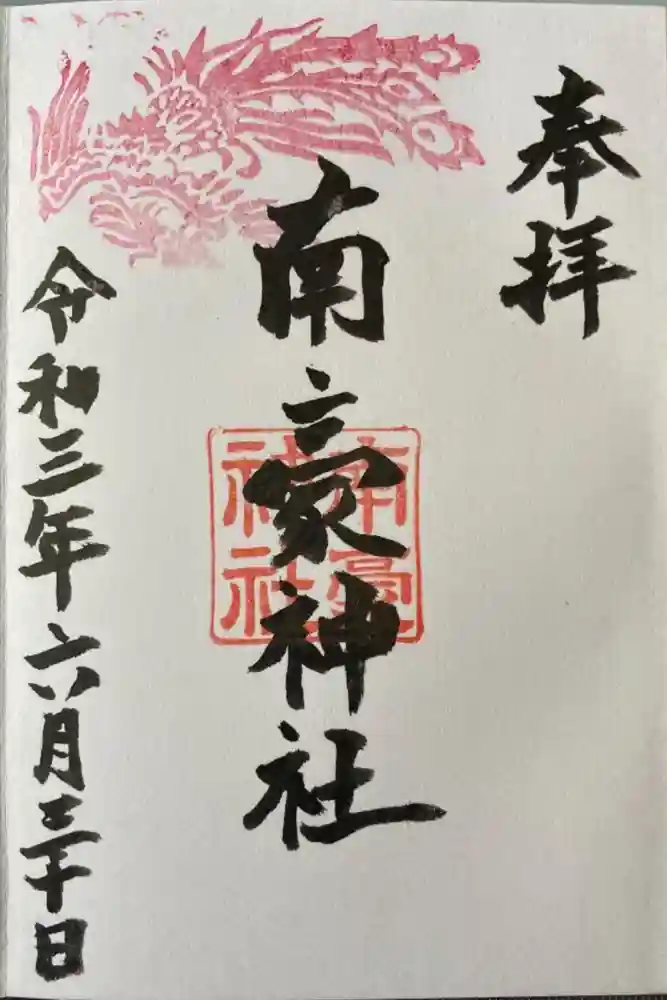 奉拝
南豪神社
南豪神社
令和三年六月三十日